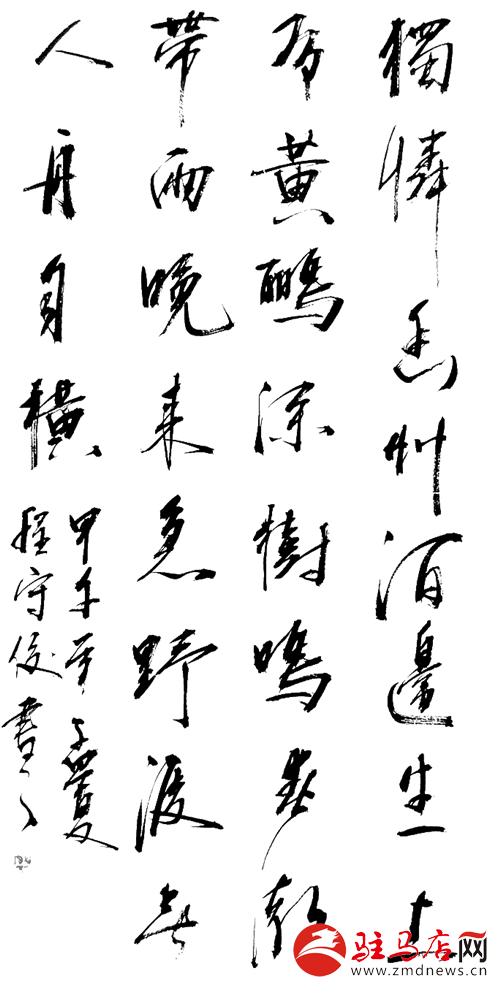 獨憐幽艸澗邊生上
有黃鸝深樹鳴春潮
帶雨晚来急野渡無
人舟自橫
甲午年夏
程守俊書
驻马店网
www.zmdnews.cn